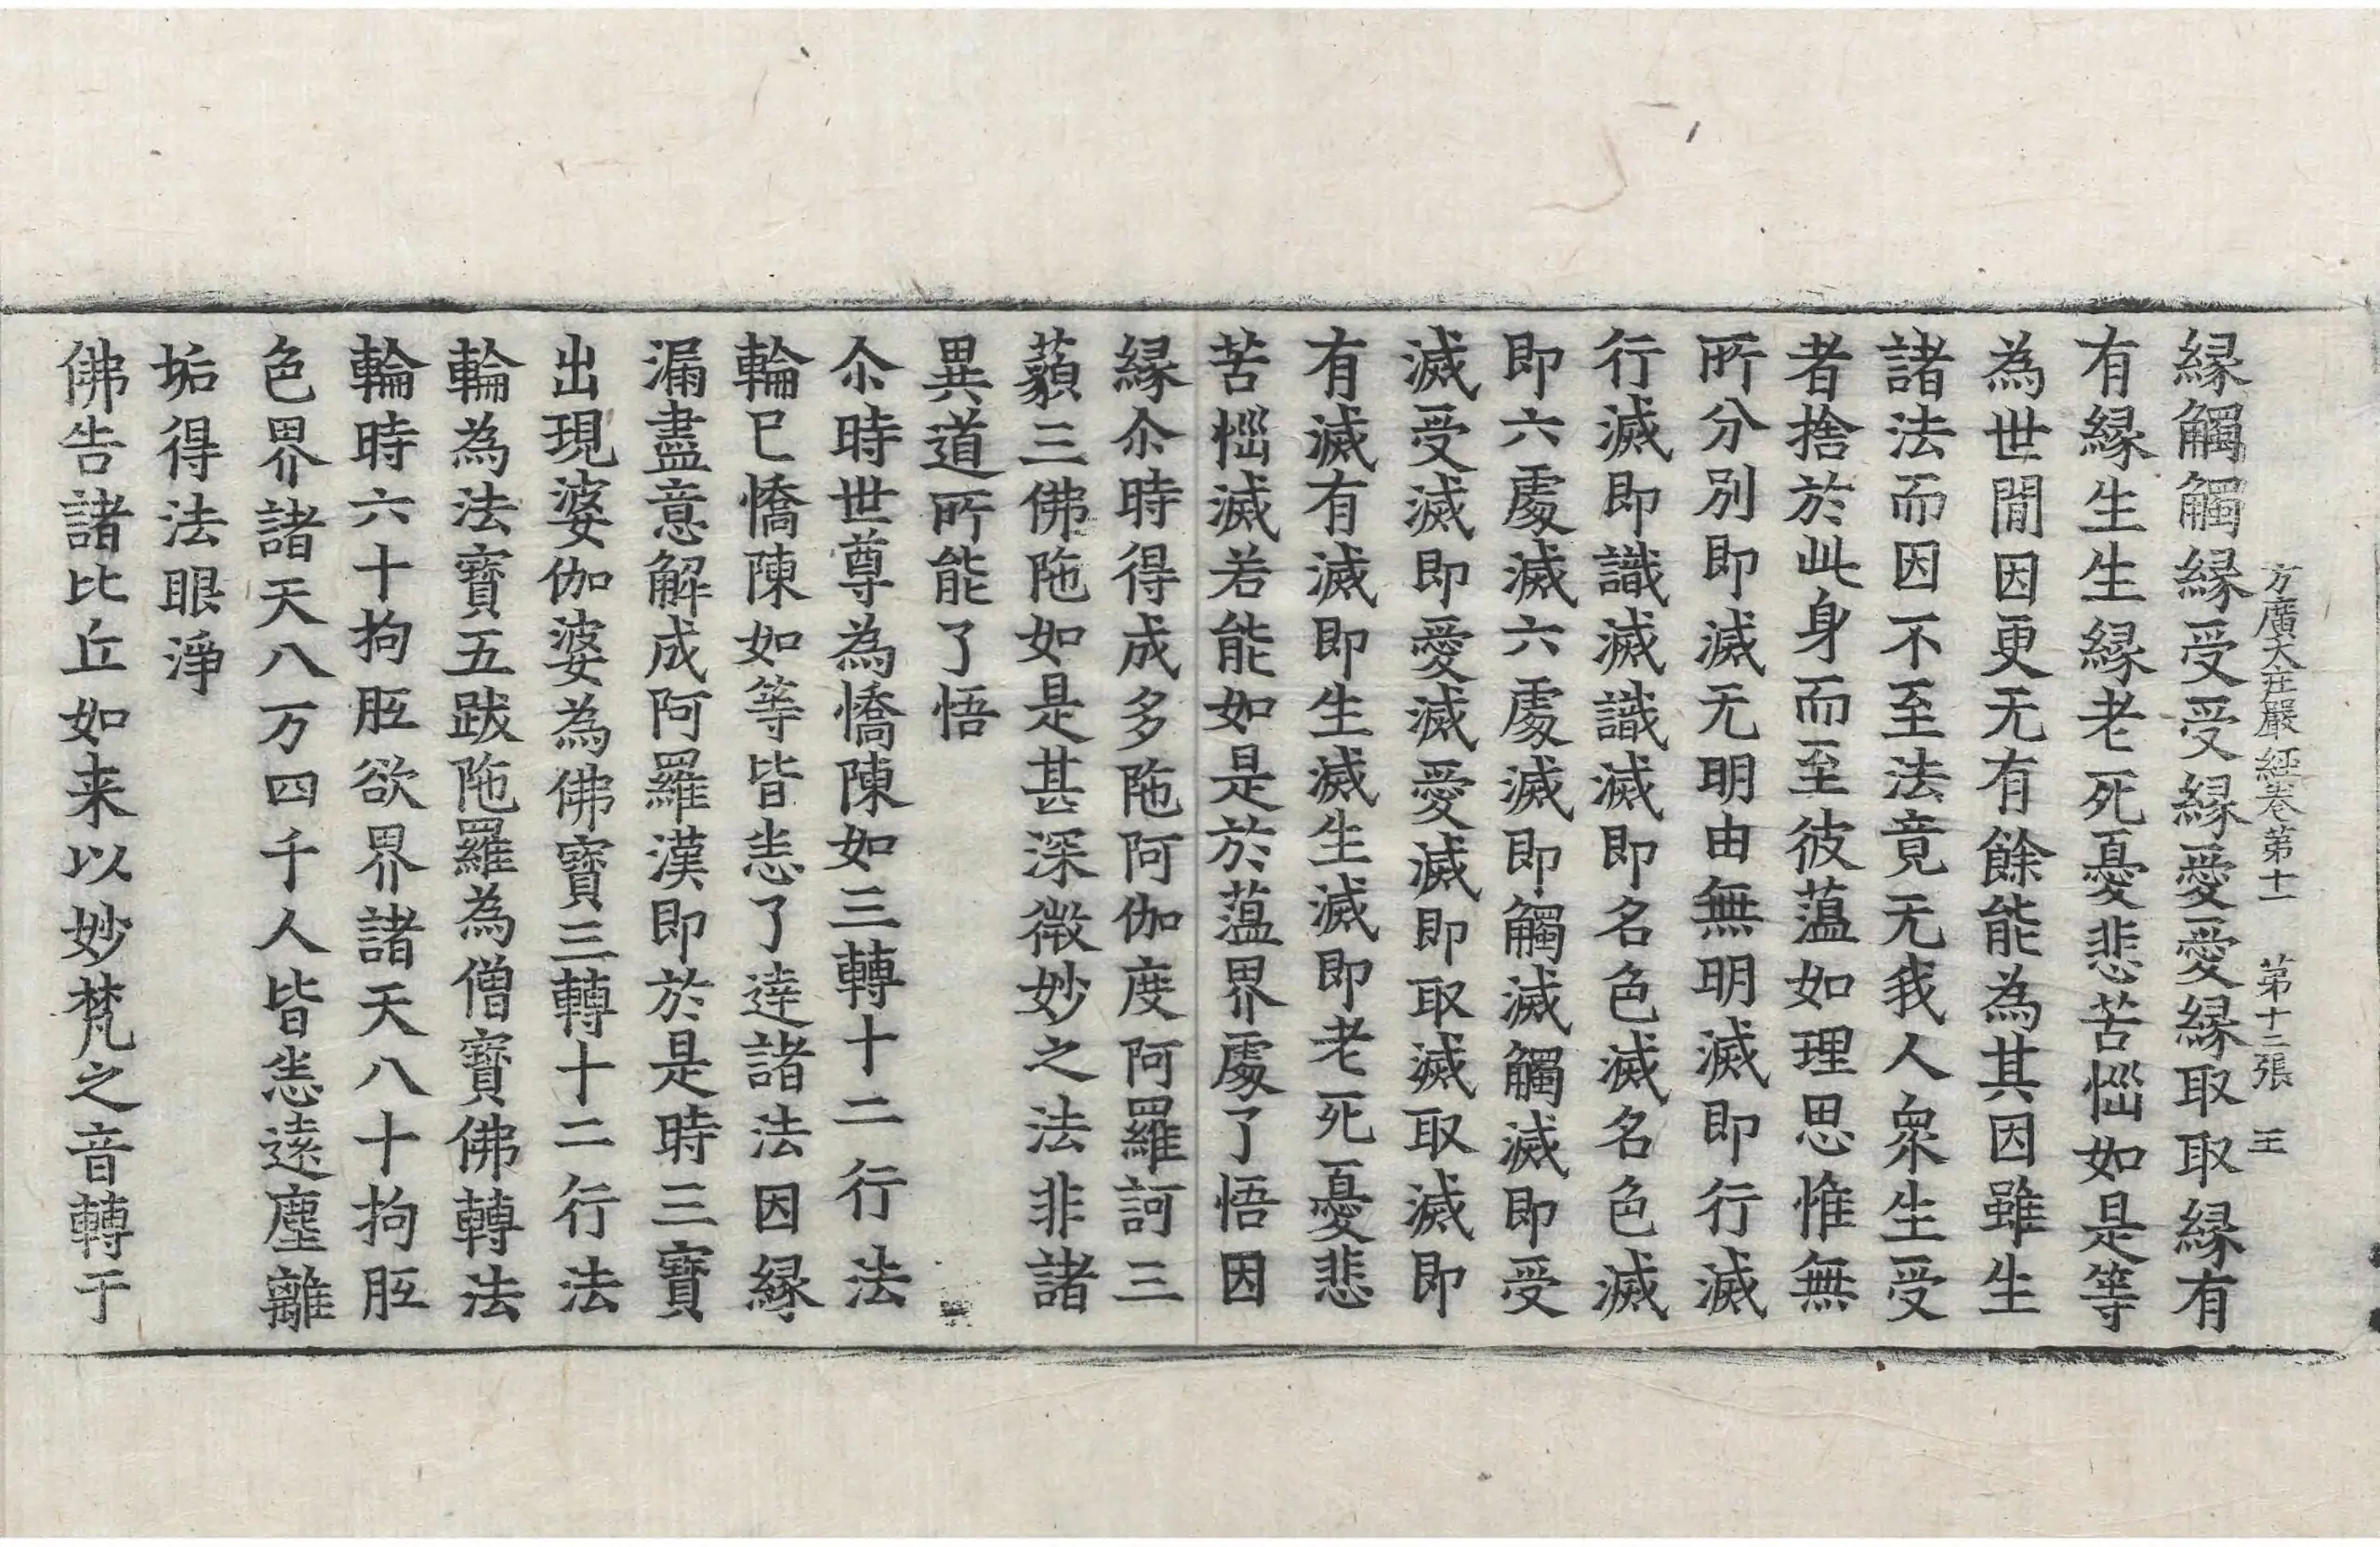 方廣大庄嚴經卷第十一　第十二張　王
縁觸觸縁受受縁愛愛縁取取縁有
有縁生生縁老死憂悲苦惱如是等
為世間因更无有餘能為其因雖生
諸法而因不至法竟无我人衆生受
者捨於此身而至彼蕰如理思惟無
所分別即滅无明由無明滅即行滅
行滅即識滅識滅即名色滅名色滅
即六處滅六處滅即觸滅觸滅即受
滅受滅即愛滅愛滅即取滅取滅即
有滅有滅即生滅生滅即老死憂悲
苦惱滅若能如是於蕰界處了悟因
縁尒時得成多陁阿伽度阿羅訶三
藐三佛陁如是甚深微妙之法非諸
異道所能了悟
尒時世尊為憍陳如三轉十二行法
輪已憍陳如等皆悉了達諸法因縁
漏盡意解成阿羅漢即於是時三寶
出現婆伽婆為佛寶三轉十二行法
輪為法寶五跋陁羅為僧寶佛轉法
輪時六十拘胝欲界諸天八十拘胝
色界諸天八万四千人皆悉遠塵離
垢得法眼淨
佛告諸比丘如来以妙梵之音轉于